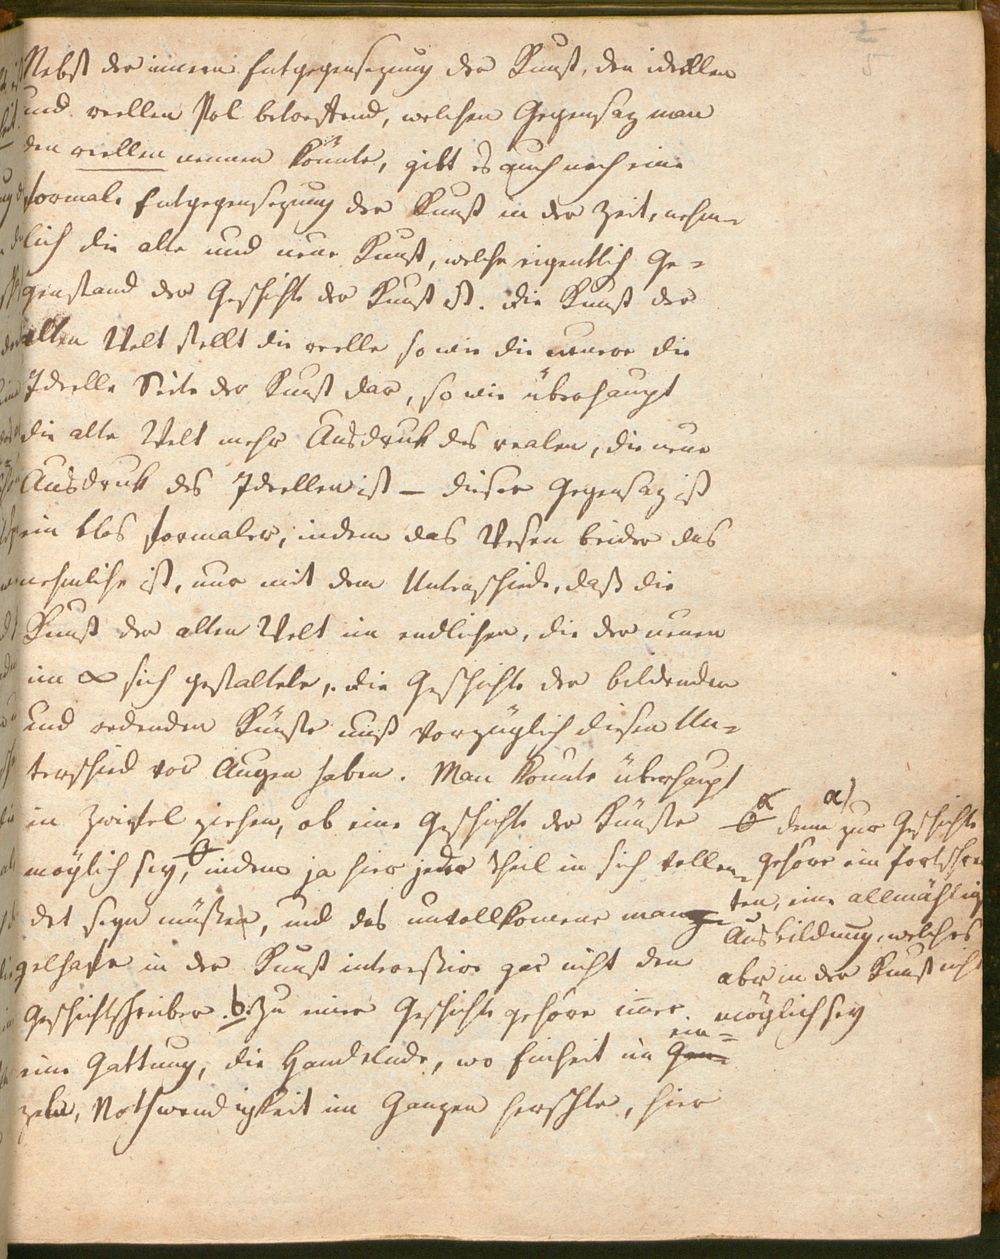 Nebst der innern Entgegensezung der Kunst, den ideellen
und reellen Pol betreffend, welchen Gegensaz man
den reellen nennen könnte, gibt es auch noch eine
formale Entgegensezung der Kunst in der Zeit, nehm-
lich die alte und neue Kunst, welche eigentlich Ge-
genstand der Geschichte der Kunst ist. Die Kunst der
alten Welt stellt die reelle so wie die neuere die
Ideelle Seite der Kunst dar, so wie überhaupt
die alte Welt mehr Ausdruk des realen, die neue
Ausdruk des Ideellen ist – dieser Gegensaz ist
ein blos formaler, indem das Wesen beider das
nehmliche ist, nur mit dem Unterschiede, daß die
Kunst der alten Welt im endlichen, die der neuen
im ∞ sich gestaltete. Die Geschichte der bildenden
und redenden Künste muß vorzüglich diesen Un-
terschied vor Augen haben. Man konnte überhaupt
in Zweifel ziehen, ob eine Geschichte der Künste
möglich sey, indem ja hier jeder Theil in sich vollen-
det seyn müßte, und das unvollkomene man-
gelhafte in der Kunst interessire gar nicht den
Geschichtschreiber. b. Zu einer Geschichte gehöre imer
eine Gattung, die Handelnde, wo Einheit im ein-
zeln, Nothwendigkeit im Ganzen herschte, hier
a) denn zur Geschichte
gehöre ein fortschrei
ten, eine allmählig
Ausbildung, welches
aber in der Kunst nicht
möglich sey